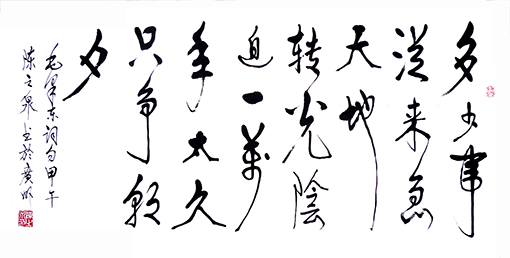 多少事
從来急
天地
转光陰
迫一萬
年太久
只争朝
夕
毛泽东词句甲午
陈之泉书於廣州